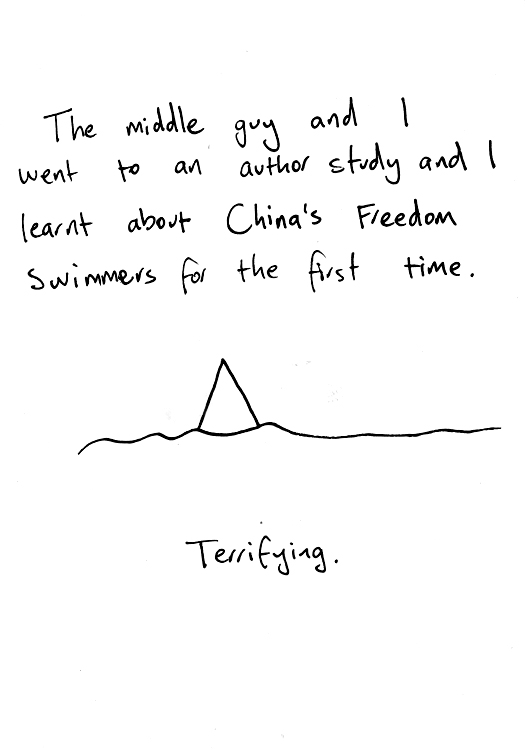 The middle guy and I
went to an author study and I
learnt about China's Freedom
Swimmers for the first time.
Terrifying.